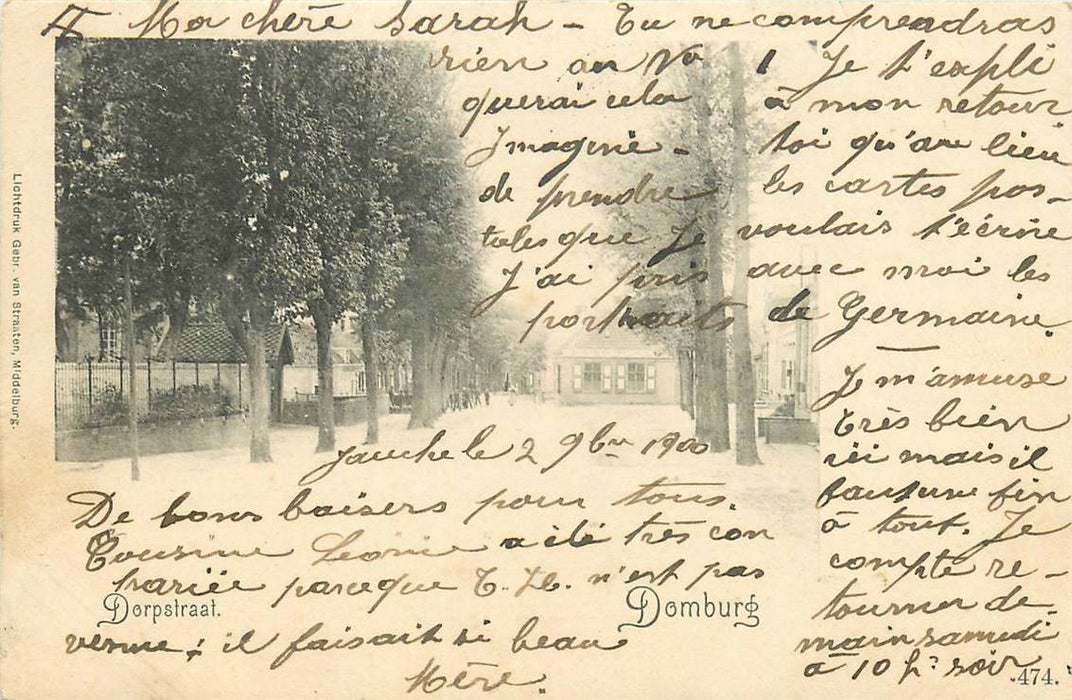 Ma chère Sarah - Tu ne comprendras
rien au Vo 1 Je t'expli
querai cela à mon retour
Imagine - toi qu'au lieu
de prendre les cartes pos-
tales que Je voulais t'écrire
J'ai pris avec moi les
portraits de Germaine.
Je m'amuse
très bien
ici mais il
faut une fin
à tout. Je
compte re-
tourner de-
main samedi
à 10 h. soir
Jauche le 2 9bre 1900
De bons baisers pour tous.
Cousine Léonie a été très con
trariée parceque T. H. n'est pas
venue ; il faisait si beau
Mère.
Dorpstraat.
Domburg
474.
Lichtdruk Gebr. van Straaten, Middelburg.